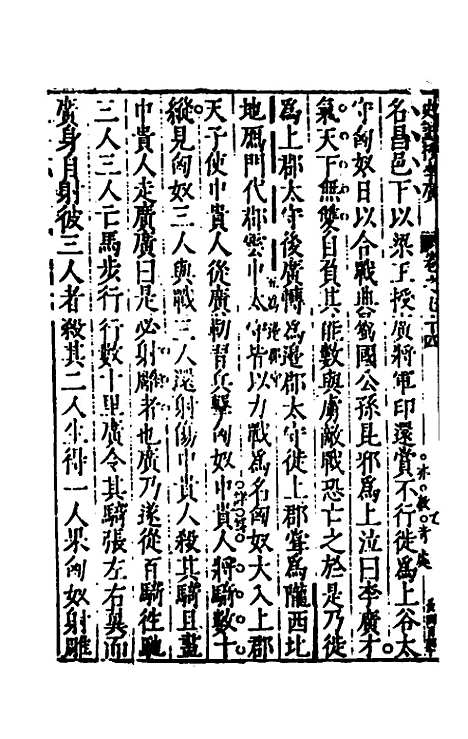 名昌邑下以梁王授廣將軍印還賞不行徙爲上谷太
守匈奴日以合戰典屬國公孫昆邪爲上泣曰李廣才
氣天下無雙自負其能數與虜敵戰恐亡之於是乃徙
爲上郡太守後廣轉爲邊郡太守徙上郡嘗爲隴西北
地鴈門代郡雲中太守皆以力戰爲名匈奴大入上郡
天子使中貴人從廣勒習兵擊匈奴中貴人將騎數十
縱見匈奴三人與戰三人還射傷中貴人殺其騎且盡
中貴人走廣廣曰是必射雕者也廣乃遂從百騎往馳
三人三人亡馬步行行數十里廣令其騎張左右翼而
廣身自射彼三人者殺其二人生得一人果匈奴射雕